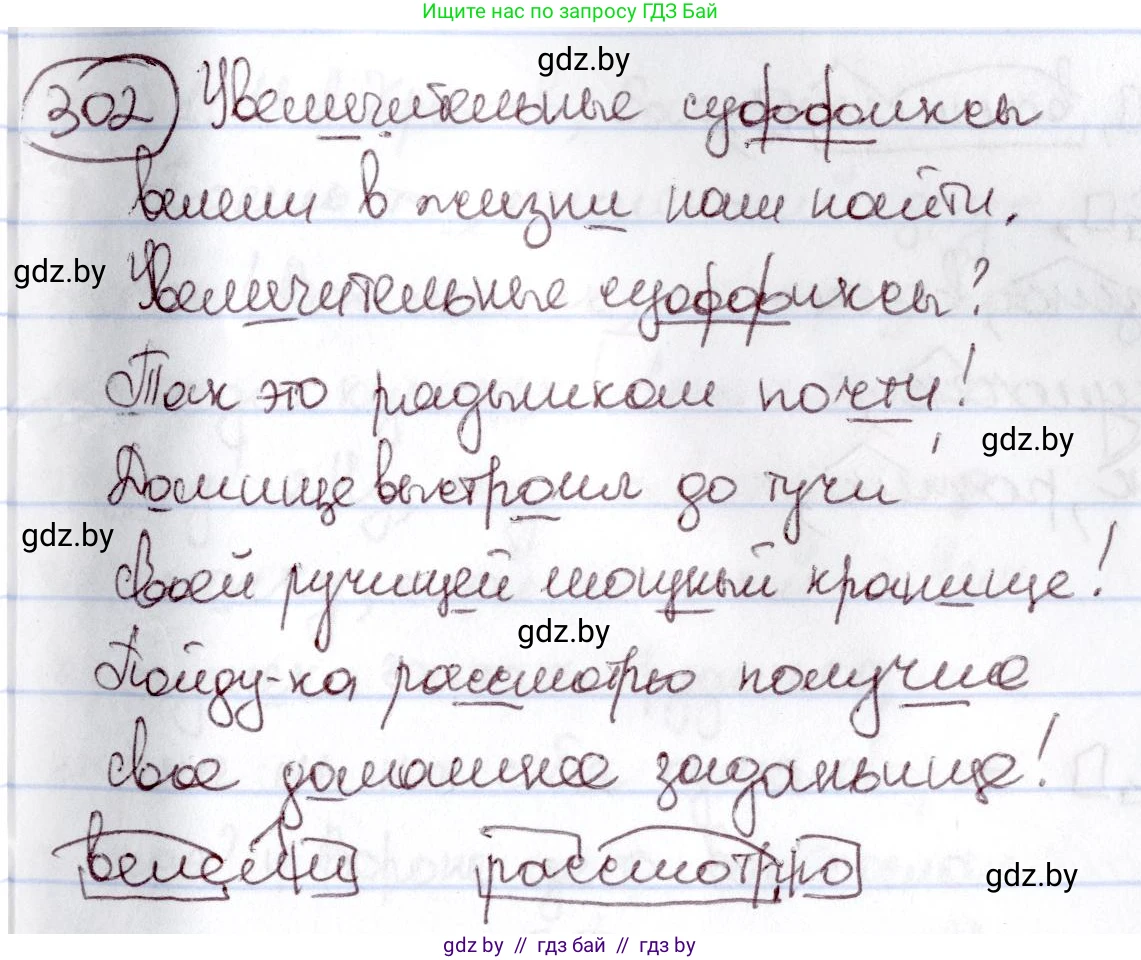 Ищите нас по запросу ГДЗ Бай
gdz.by
302 Увеличительные суффиксы
велели в жизни нам найти.
gdz.by
Увеличительные суффиксы?
Так это радышком почти!
gdz.by
Домище выстроил до тучи
gdz.by
своей ручищей мощный кранище!
gdz.by
Пойду-ка рассмотрю получше
свое домашнее заданьище!
велели рассмотрю
gdz.by
gdz.by // гдз бай // гдз by